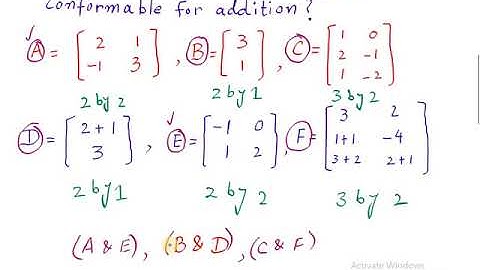 conformable for addition?
A = [ 2 1 -1 3 ], B = [ 3 1 ], C = [ 1 0 2 -1 1 -2 ]
2 by 2 2 by 1 3 by 2
D = [ 2+1 3 ], E = [ -1 0 1 2 ], F = [ 3 2 1+1 -4 3+2 2+1 ]
2 by 1 2 by 2 3 by 2
(A & E), (B & D), (C & F)
Activate Windows